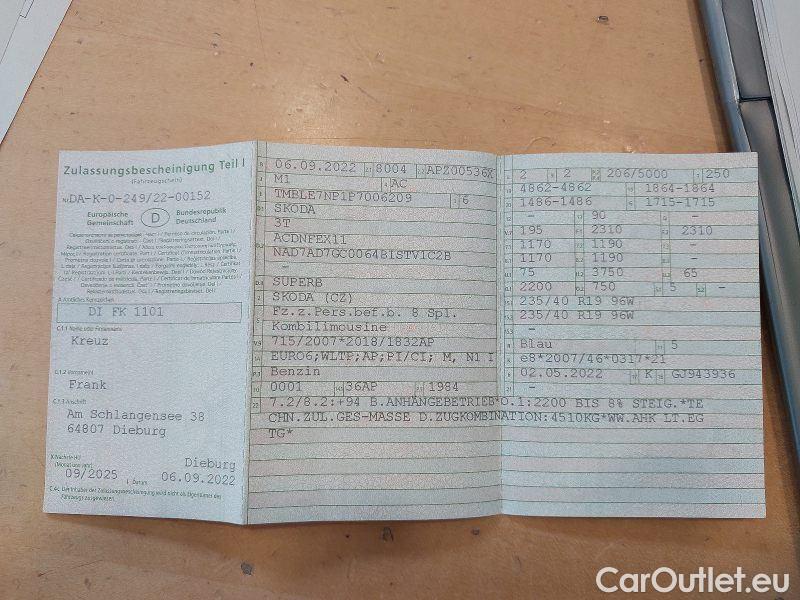 Zulassungsbescheinigung Teil I
(Fahrzeugschein)
Nr. DA-K-0-249/22-00152
Europäische Gemeinschaft
D
Bundesrepublik Deutschland
A Amtliches Kennzeichen
DI FK 1101
C.1.1 Name oder Firmenname
Kreuz
C.1.2 Vorname(n)
Frank
C.1.3 Anschrift
Am Schlangensee 38
64807 Dieburg
X Nächste HU
(Monat und Jahr)
09/2025
Dieburg
I Datum
06.09.2022
C.4c. Der Inhaber der Zulassungsbescheinigung wird nicht als Eigentümer des Fahrzeugs ausgewiesen.
06.09.2022 8004 APZ00536X
M1 AC
TMBLE7NP1P7006209 6
SKODA
3T
ACDNFEX11
NAD7AD7GC0064BISTV1C2B
-
SUPERB
SKODA (CZ)
Fz.z.Pers.bef.b. 8 Spl.
Kombilimousine
715/2007*2018/1832AP
EURO6;WLTP;AP;PI/CI; M, N1 I
Benzin
0001 36AP 1984
2 2 206/5000 250
4862-4862 1864-1864
1486-1486 1715-1715
- 90 -
195 2310 2310
1170 1190 -
1170 1190 -
75 3750 65
2200 750 5 -
235/40 R19 96W
235/40 R19 96W
-
Blau 5
e8*2007/46*0317*21
02.05.2022 K GJ943936
-
7.2/8.2:+94 B.ANHÄNGEBETRIEB*O.1:2200 BIS 8% STEIG.*TE
CHN.ZUL.GES-MASSE D.ZUGKOMBINATION:4510KG*WW.AHK LT.EG
TG*
CarOutlet.eu